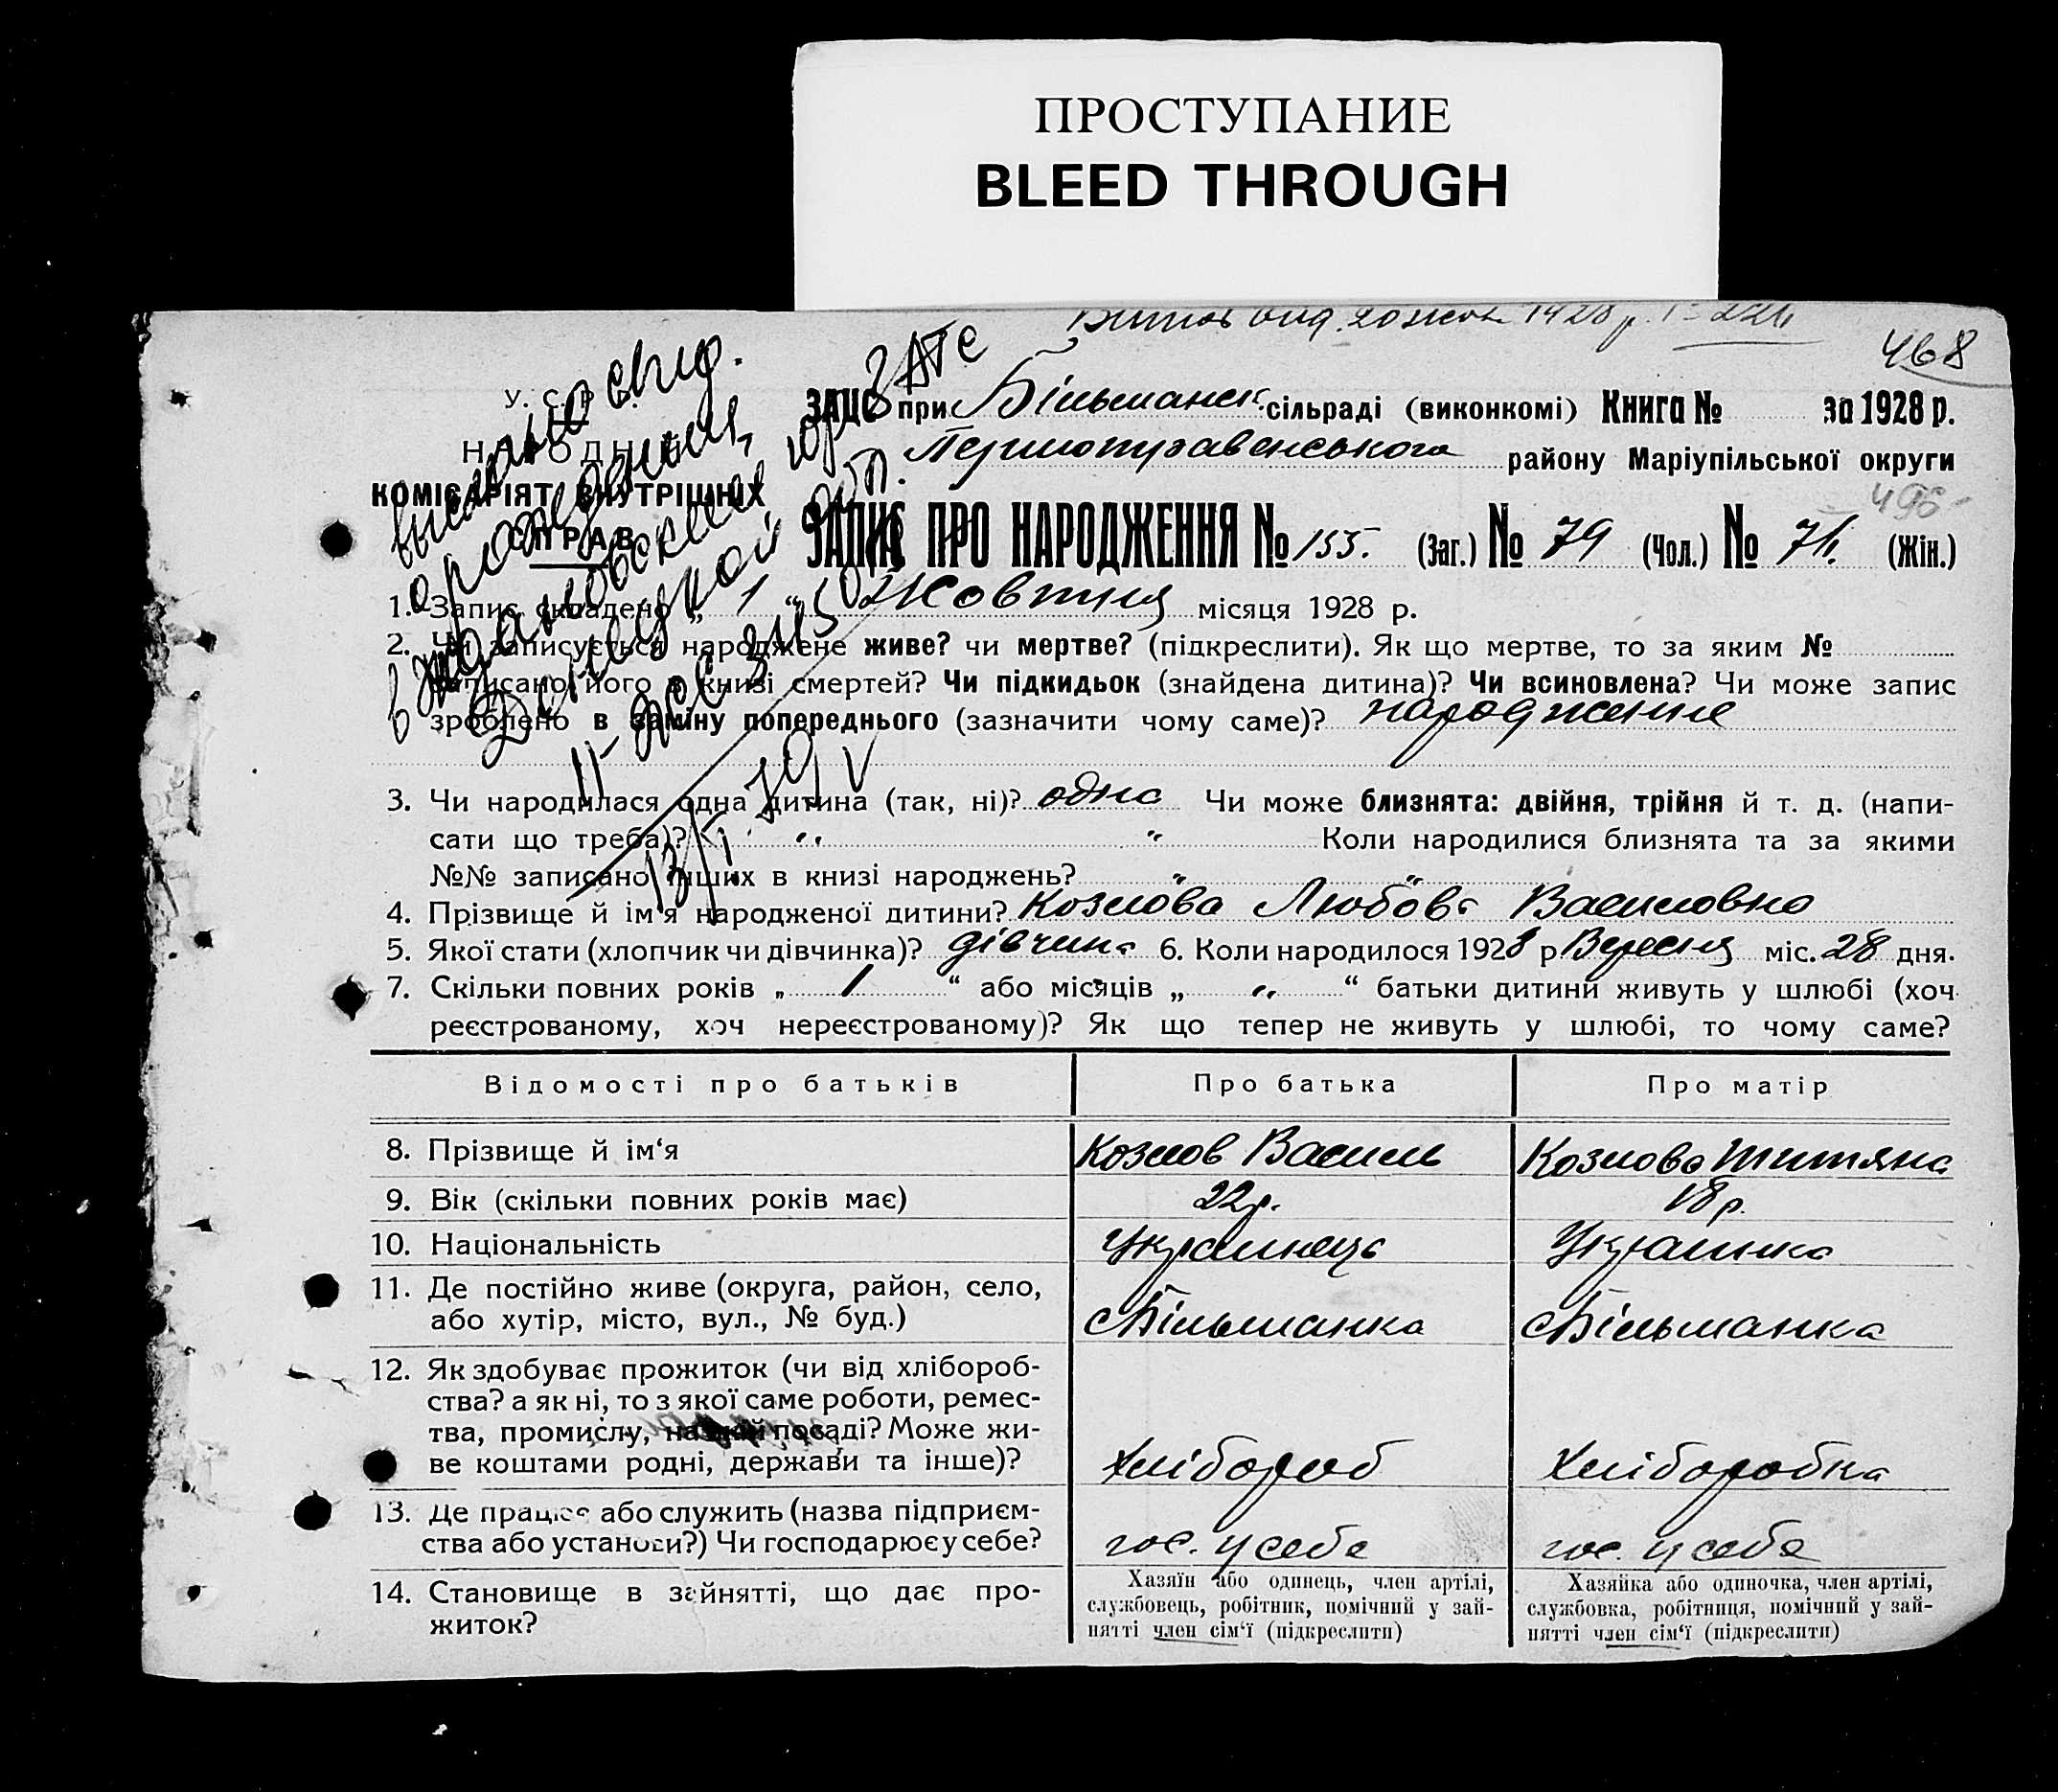 ПРОСТУПАНИЕ
BLEED THROUGH
1928 р.
468
У. С. Р. Р.
НАРОДНІЙ
КОМІСАРІЯТ ВНУТРІШНІХ
СПРАВ
выслано свид.
о рождении
в Ждановский гор ЗАГС
Донецкой обл.
11-ЖС
13/V-79
ЗАЦС при Більманск. сільраді (виконкомі) Книга № за 1928 р.
Першотравенського району Маріупільської округи
496
ЗАПИС ПРО НАРОДЖЕННЯ № 155. (Заг.) № 79 (Чол.) № 76. (Жін.)
1. Запис складено „ 1 “ Жовтня місяця 1928 р.
2. Чи записується народжене живе? чи мертве? (підкреслити). Як що мертве, то за яким №
записано його в книзі смертей? Чи підкидьок (знайдена дитина)? Чи всиновлена? Чи може запис
зроблено в заміну попереднього (зазначити чому саме)? народження
3. Чи народилася одна дитина (так, ні)? одна Чи може близнята: двійня, трійня й т. д. (напи-
сати що треба)? „ „ Коли народилися близнята та за якими
№№ записано інших в книзі народжень? „ „
4. Прізвище й ім'я народженої дитини? Козлова Любовь Василовна
5. Якої стати (хлопчик чи дівчинка)? дівчин. 6. Коли народилося 1928 р Вересня міс. 28 дня.
7. Скільки повних років „ 1 “ або місяців „ „ “ батьки дитини живуть у шлюбі (хоч
реєстрованому, хоч нереєстрованому)? Як що тепер не живуть у шлюбі, то чому саме?
Відомості про батьків Про батька Про матір
8. Прізвище й ім‘я Козлов Василь Козлова Титяна
9. Вік (скільки повних років має) 22р. 18р.
10. Національність Українець Українка
11. Де постійно живе (округа, район, село,
або хутір, місто, вул., № буд.) с Більманка с Більманка
12. Як здобуває прожиток (чи від хлібороб-
ства? а як ні, то з якої саме роботи, ремес-
тва, промислу, на якій посаді? Може жи-
ве коштами родні, держави та інше)? Хлібороб Хлiборобка
13. Де працює або служить (назва підприєм-
ства або установи?) Чи господарює у себе? гос. у себе гос. у себе
14. Становище в зайнятті, що дає про-
житок?
Хазяїн або одинець, член артілі,
службовець, робітник, помічний у зай-
нятті член сім‘ї (підкреслити)
Хазяйка або одиночка, член артілі,
службовка, робітниця, помічний у зай-
нятті член сім‘ї (підкреслити)